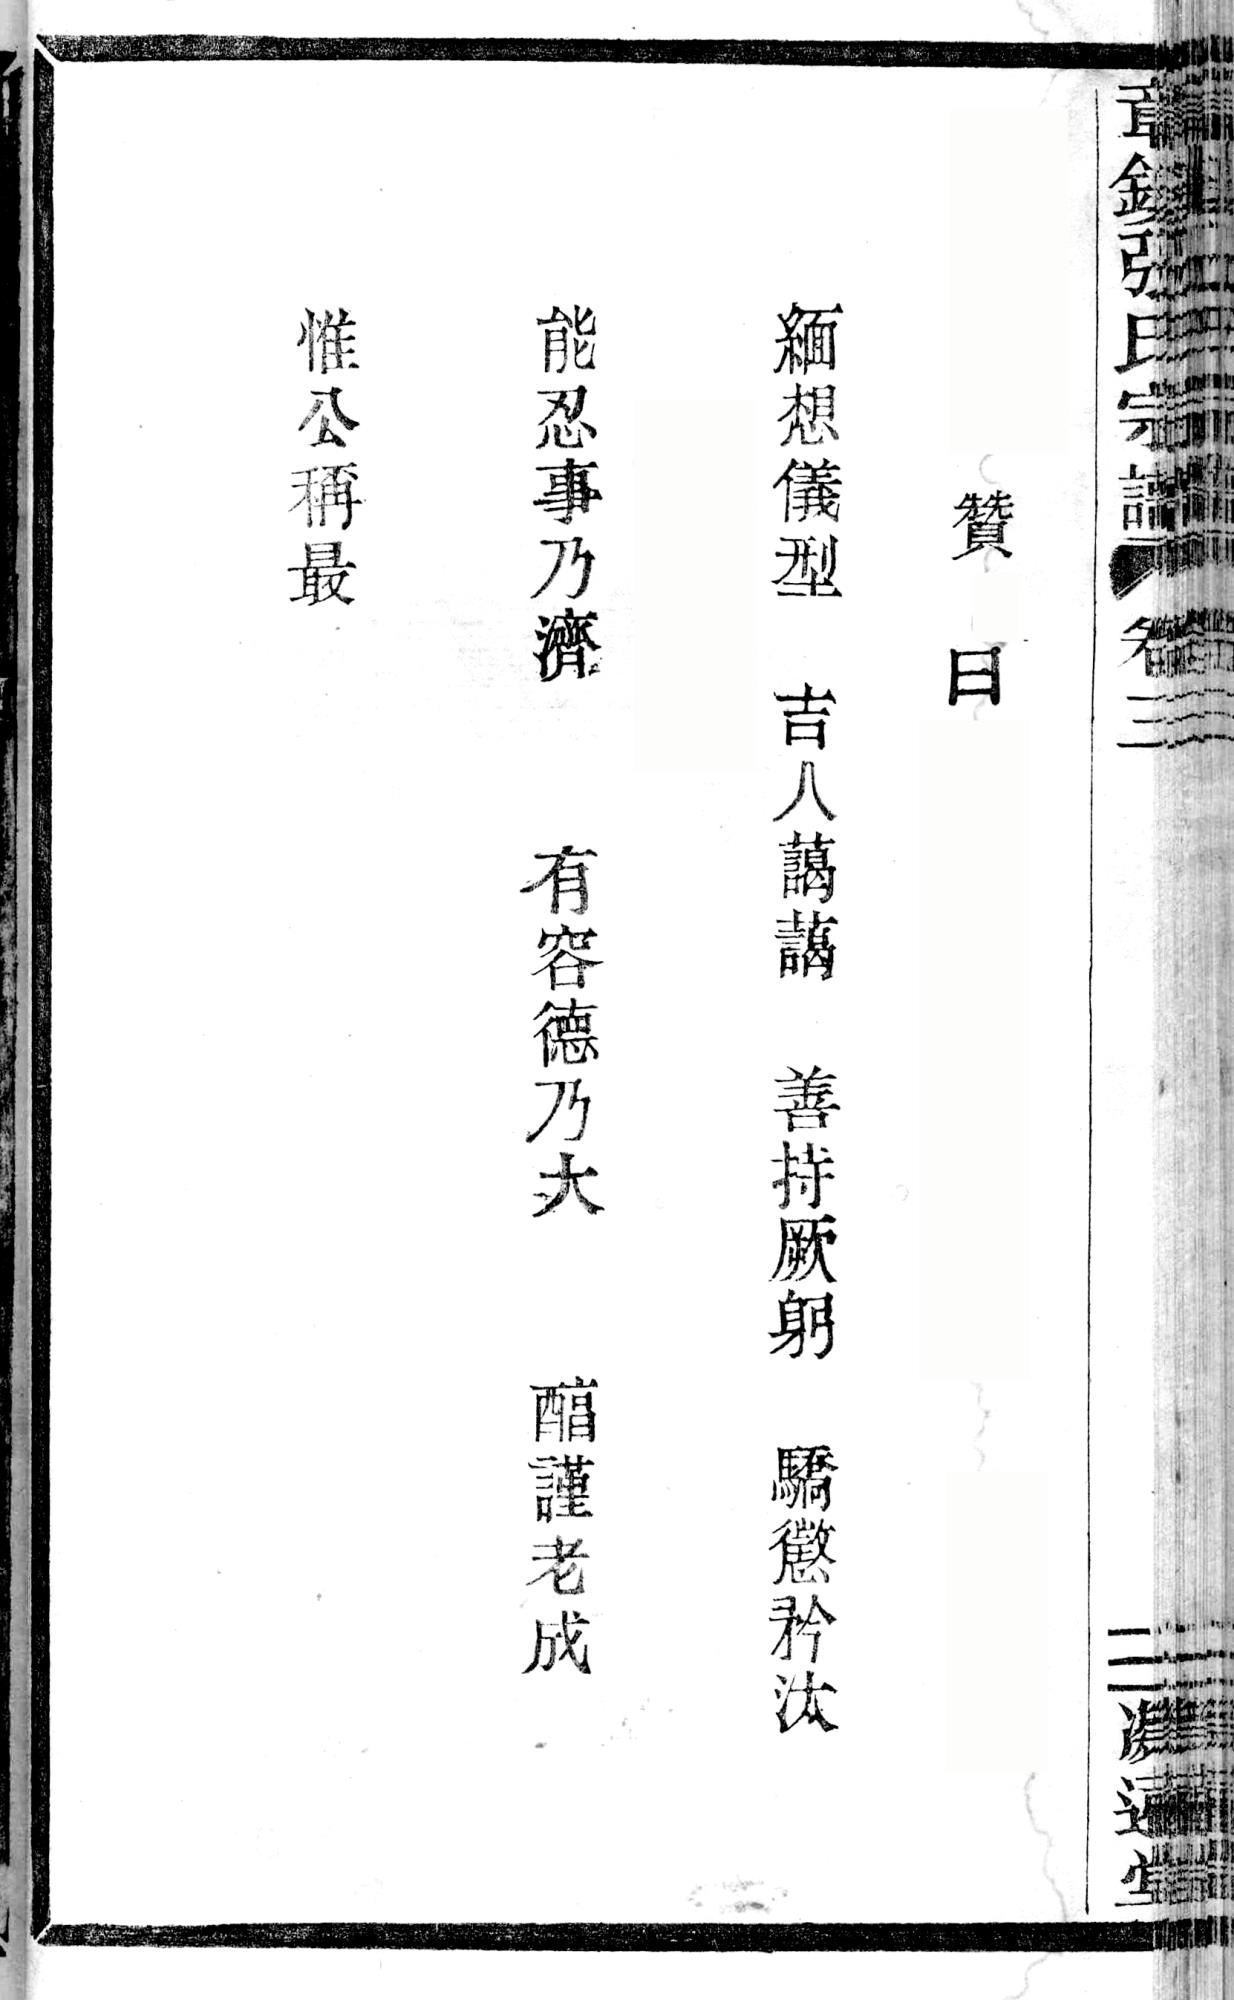 張氏宗譜 卷三
贊曰
緬想儀型 吉人藹藹 善持厥躬 驕懲矜汰
能忍事乃濟 有容德乃大 醕謹老成
惟公稱最